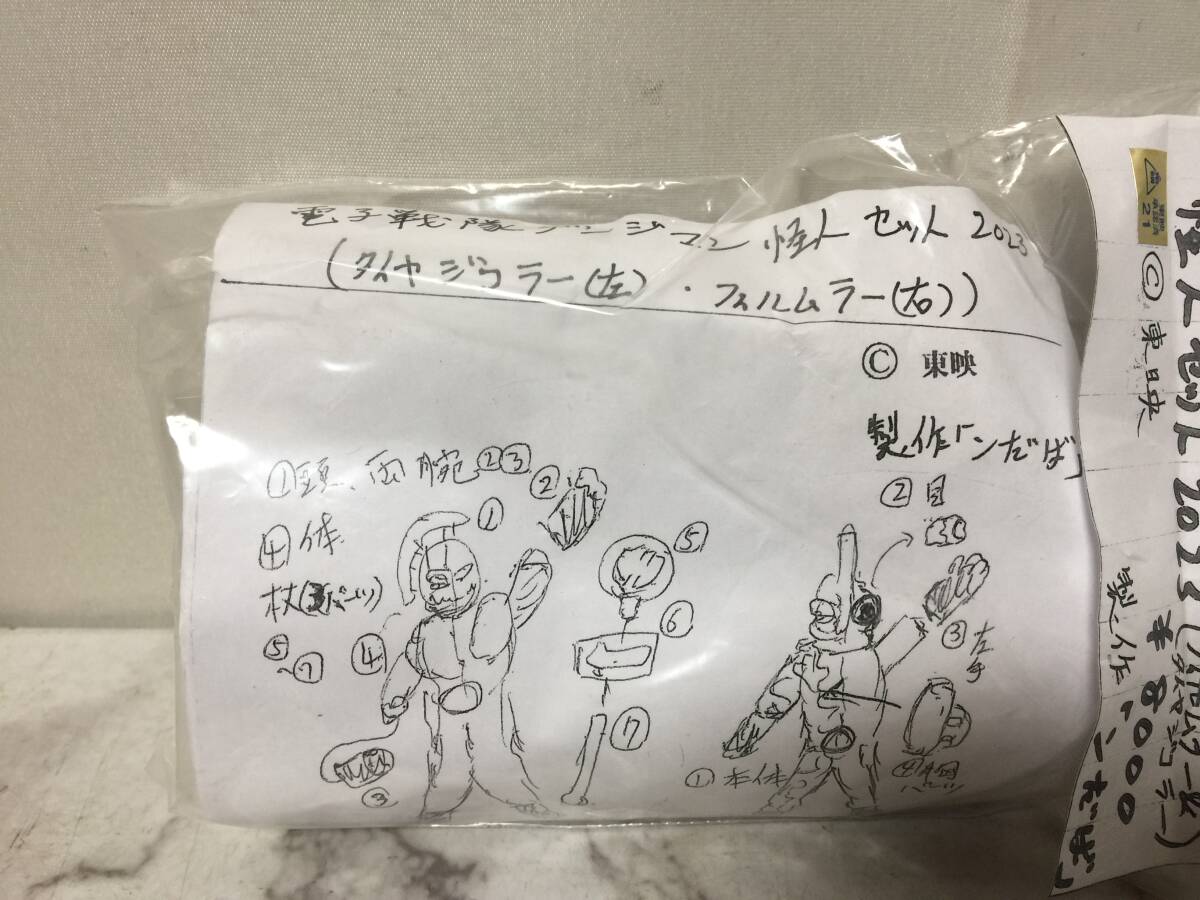 電子戦隊デンジマン怪人セット2023
(ダイヤジゴラー(左)・フィルムラー(右))
© 東映
製作「ンだば」
①頭、両腕②③
④体
杖(3パーツ)
⑤~⑦
①
②
③
④
⑤
⑥
⑦
②目
③左手
①本体
④胸パーツ
怪人セット2023
©東映
¥8000
製作「ンだば」
21